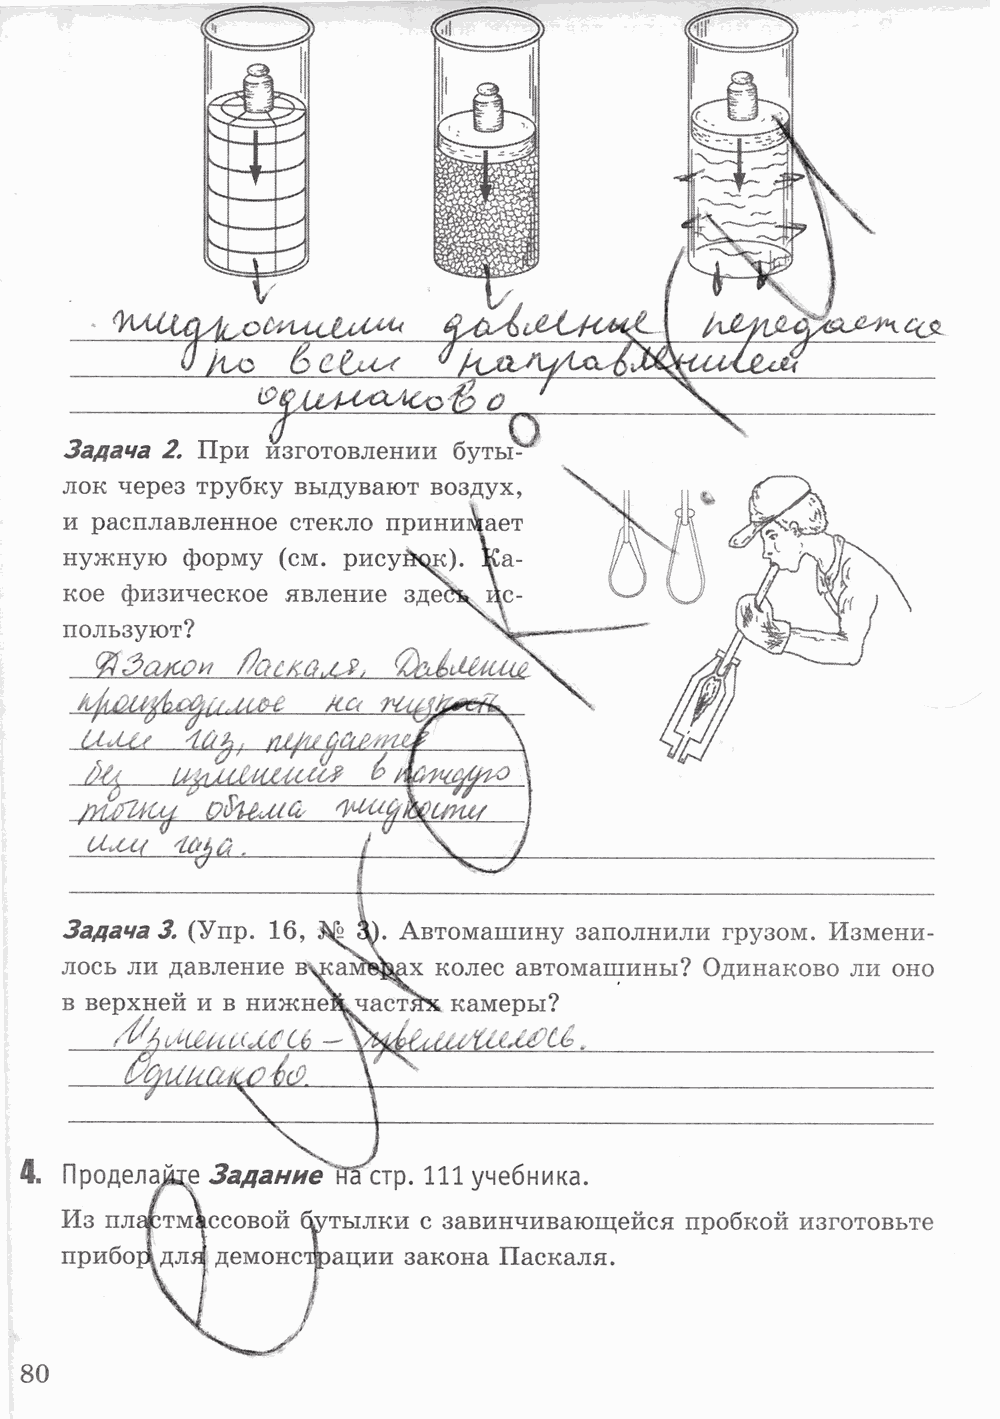 жидкостями давление передается
по всем направлением
одинаково
Задача 2. При изготовлении буты-
лок через трубку выдувают воздух,
и расплавленное стекло принимает
нужную форму (см. рисунок). Ка-
кое физическое явление здесь ис-
пользуют?
Закон Паскаля, Давление
производимое на жидкость
или газ, передается
без изменения в каждую
точку объема жидкости
или газа.
Задача 3. (Упр. 16, № 3). Автомашину заполнили грузом. Измени-
лось ли давление в камерах колес автомашины? Одинаково ли оно
в верхней и в нижней частях камеры?
Изменилось – увеличилось.
Одинаково.
4. Проделайте Задание на стр. 111 учебника.
Из пластмассовой бутылки с завинчивающейся пробкой изготовьте
прибор для демонстрации закона Паскаля.
80